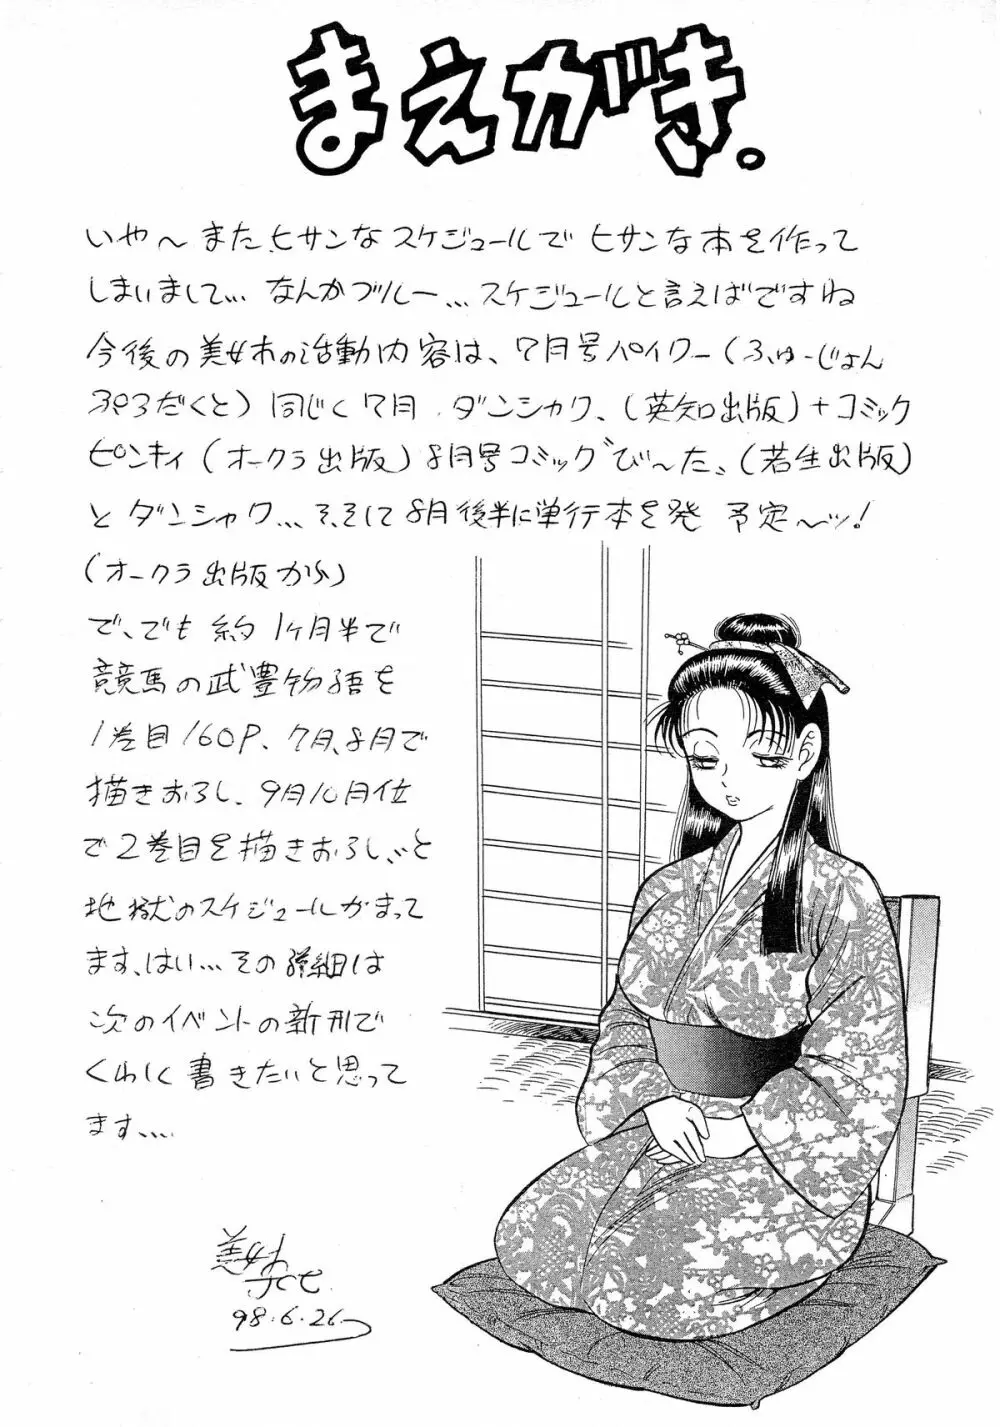 まえがき。
いや〜また、ヒサンなスケジュールでヒサンな本を作って
しまいまして… なんかブルー…スケジュールと言えばですね
今後の美女木の活動内容は、7月号パイクー(ふゅーじょん
ぷろだくと)同じく7月 ダンシャク、(英知出版)+コミック
ピンキィ(オークラ出版)8月号コミックび〜た、(若生出版)
とダンシャク…そ、そして8月後半に単行本を発 予定〜ッ!
(オークラ出版から)
で、でも 約1ヶ月半で
競馬の武豊物語を
1巻目160P、7月、8月で
描きおろし、9月10月位
で2巻目を描きおろし、と
地獄のスケジュールがまって
ます、はい…その詳細は
次のイベントの新刊で
くわしく書きたいと思って
ます…
美女木
98.6.26